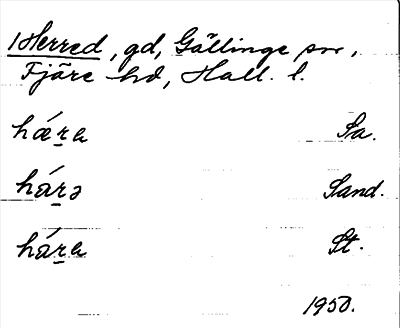 1Herred, gd, Gällinge sn,
Fjäre hd, Hall. l.
hǽṟa Sa.
háṟə Sand.
háṟa St.
1950.